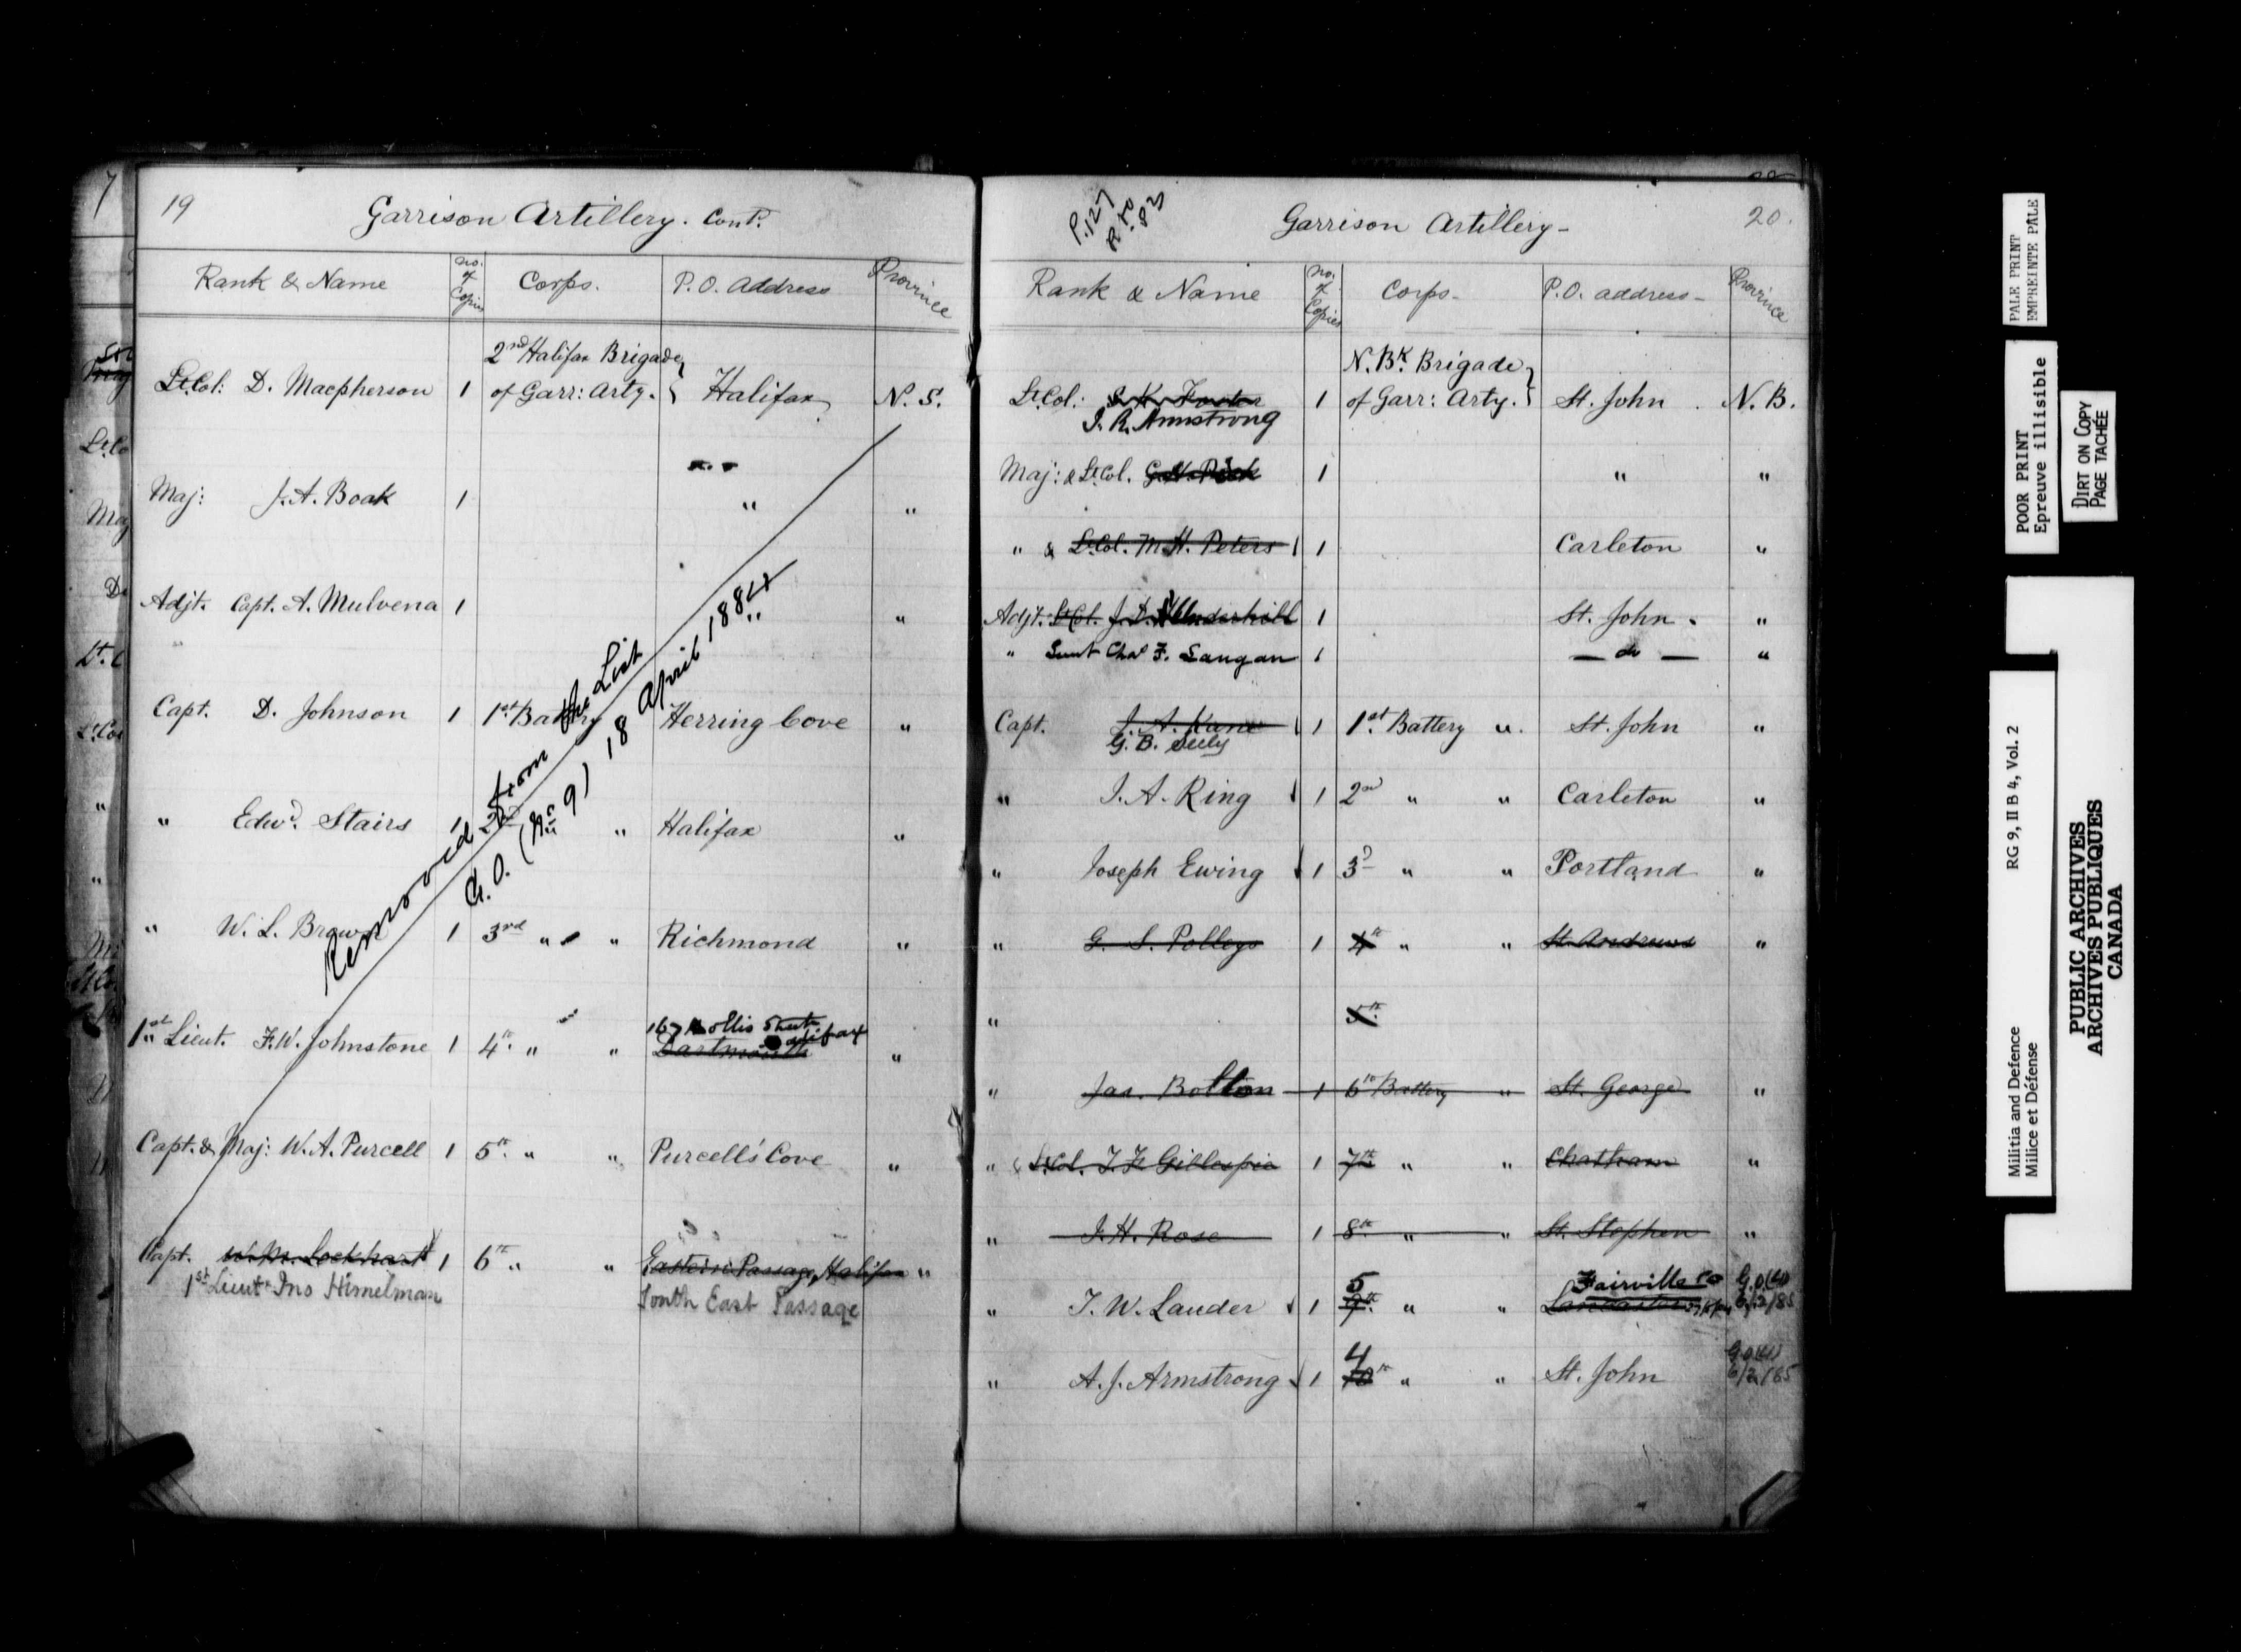 19
Garrison Artillery. Cont.
Rank & Name No. of Copies Corps. P.O. Address Province
2nd Halifax Brigade
Lt. Col: D. Macpherson 1 of Garr: Arty. } Halifax N. S.
Maj: J. A. Boak 1 " "
Adjt. Capt. A. Mulvena 1 " "
Capt. D. Johnson 1 1st Battery Herring Cove "
" Edwd. Stairs 1 2nd " " Halifax "
" W. L. Brown 1 3rd " " Richmond "
167 Hollis Street
Halifax
1st Lieut. F. W. Johnstone 1 4th " " Dartmouth "
Capt. & Maj: W. A. Purcell 1 5th " " Purcell's Cove "
Capt. W. M. Lockhart 1 6th " " Eastern Passage, Halifax "
1st Lieut Jno Himelman South East Passage
Removed from the List
G. O. (No 9) 18 April 1884
P. 127
Garrison Artillery -
20.
Rank & Name No. of Copies Corps - P.O. address - Province
N. Bk. Brigade
Lt. Col: 1 of Garr: Arty. } St. John . N. B.
J. R. Armstrong
Maj: & Lt. Col. 1 " "
" & Lt. Col. M. H. Peters 1 Carleton "
Adjt. Lt. Col. J. D. Underhill 1 St. John . "
" Chas F. Langan 1 — do — "
Capt. J. A. Kane 1 1st Battery " St. John "
G. B. Seely
" J. A. Ring 1 2nd " " Carleton "
" Joseph Ewing 1 3d " " Portland "
" G. S. Polleys 1 4th " " St. Andrews "
" 5th
" Jas. Bolton 1 6th Battery " St. George "
" & Lt. Col. T. F. Gillespie 1 7th " " Chatham "
" J. H. Rose 1 8th " " St. Stephen "
5 Fairville
" T. W. Lauder 1 9th " " Lancaster 6/2/85
4
" A. J. Armstrong 1 10th " " St. John 6/2/85
PALE PRINT
EMPREINTE PALE
POOR PRINT
Epreuve illisible
DIRT ON COPY
PAGE TACHÉE
Militia and Defence RG 9, II B 4, Vol. 2
Milice et Défense
PUBLIC ARCHIVES
ARCHIVES PUBLIQUES
CANADA